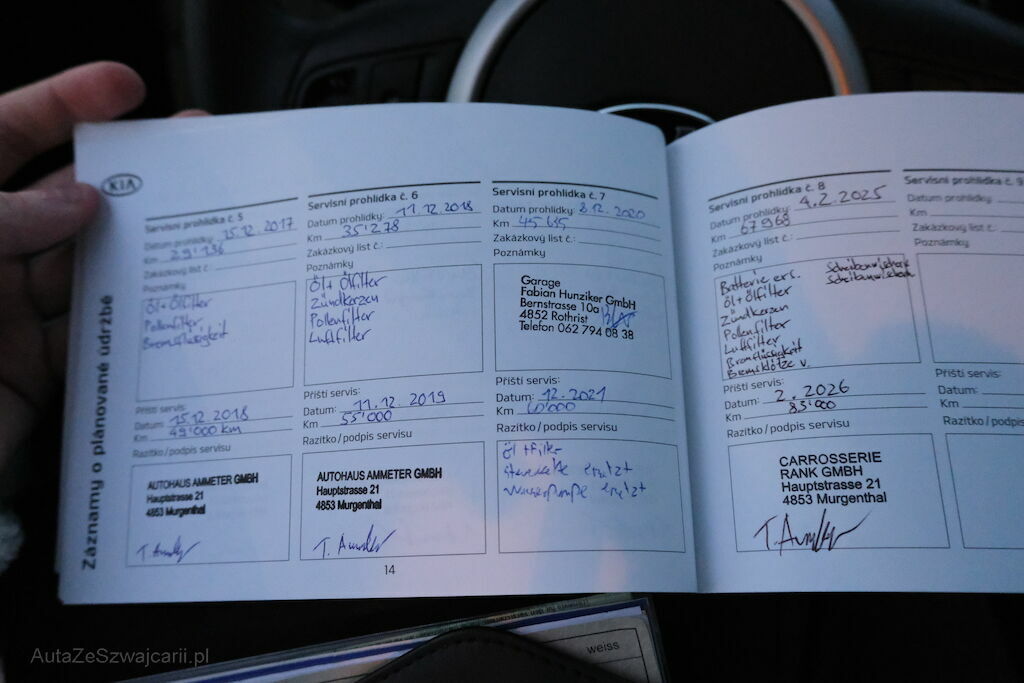 KIA
Záznamy o plánované údržbě
Servisní prohlídka č. 5
Datum prohlídky: 15.12.2017
Km 29'136
Zakázkový list č.:
Poznámky
Öl+Ölfilter
Pollenfilter
Bremsflüssigkeit
Příští servis:
Datum: 15.12.2018
Km 49'000 km
Razítko/podpis servisu
AUTOHAUS AMMETER GMBH
Hauptstrasse 21
4853 Murgenthal
Servisní prohlídka č. 6
Datum prohlídky: 11.12.2018
Km 35'278
Zakázkový list č.:
Poznámky
Öl+Ölfilter
Zündkerzen
Pollenfilter
Luftfilter
Příští servis:
Datum: 11.12.2019
Km 55'000
Razítko/podpis servisu
AUTOHAUS AMMETER GMBH
Hauptstrasse 21
4853 Murgenthal
Servisní prohlídka č. 7
Datum prohlídky: 8.12.2020
Km
Zakázkový list č.:
Poznámky
Garage
Fabian Hunziker GmbH
Bernstrasse 10a
4852 Rothrist
Telefon 062 794 08 38
Příští servis:
Datum: 12.2021
Km 60'000
Razítko/podpis servisu
14
Servisní prohlídka č. 8
Datum prohlídky: 4.2.2025
Km 67968
Zakázkový list č.:
Poznámky
Batterie ers.
Öl+Ölfilter
Zündkerzen
Pollenfilter
Luftfilter
Bremsflüssigkeit
Bremsklötze v.
Příští servis:
Datum: 2.2026
Km 85'000
Razítko/podpis servisu
CARROSSERIE
RANK GMBH
Hauptstrasse 21
4853 Murgenthal
Servisní prohlídka č. 9
Datum prohlídky:
Km
Zakázkový list č.:
Poznámky
Příští servis:
Datum:
Km
Razítko/podpis
weiss
AutaZeSzwajcarii.pl